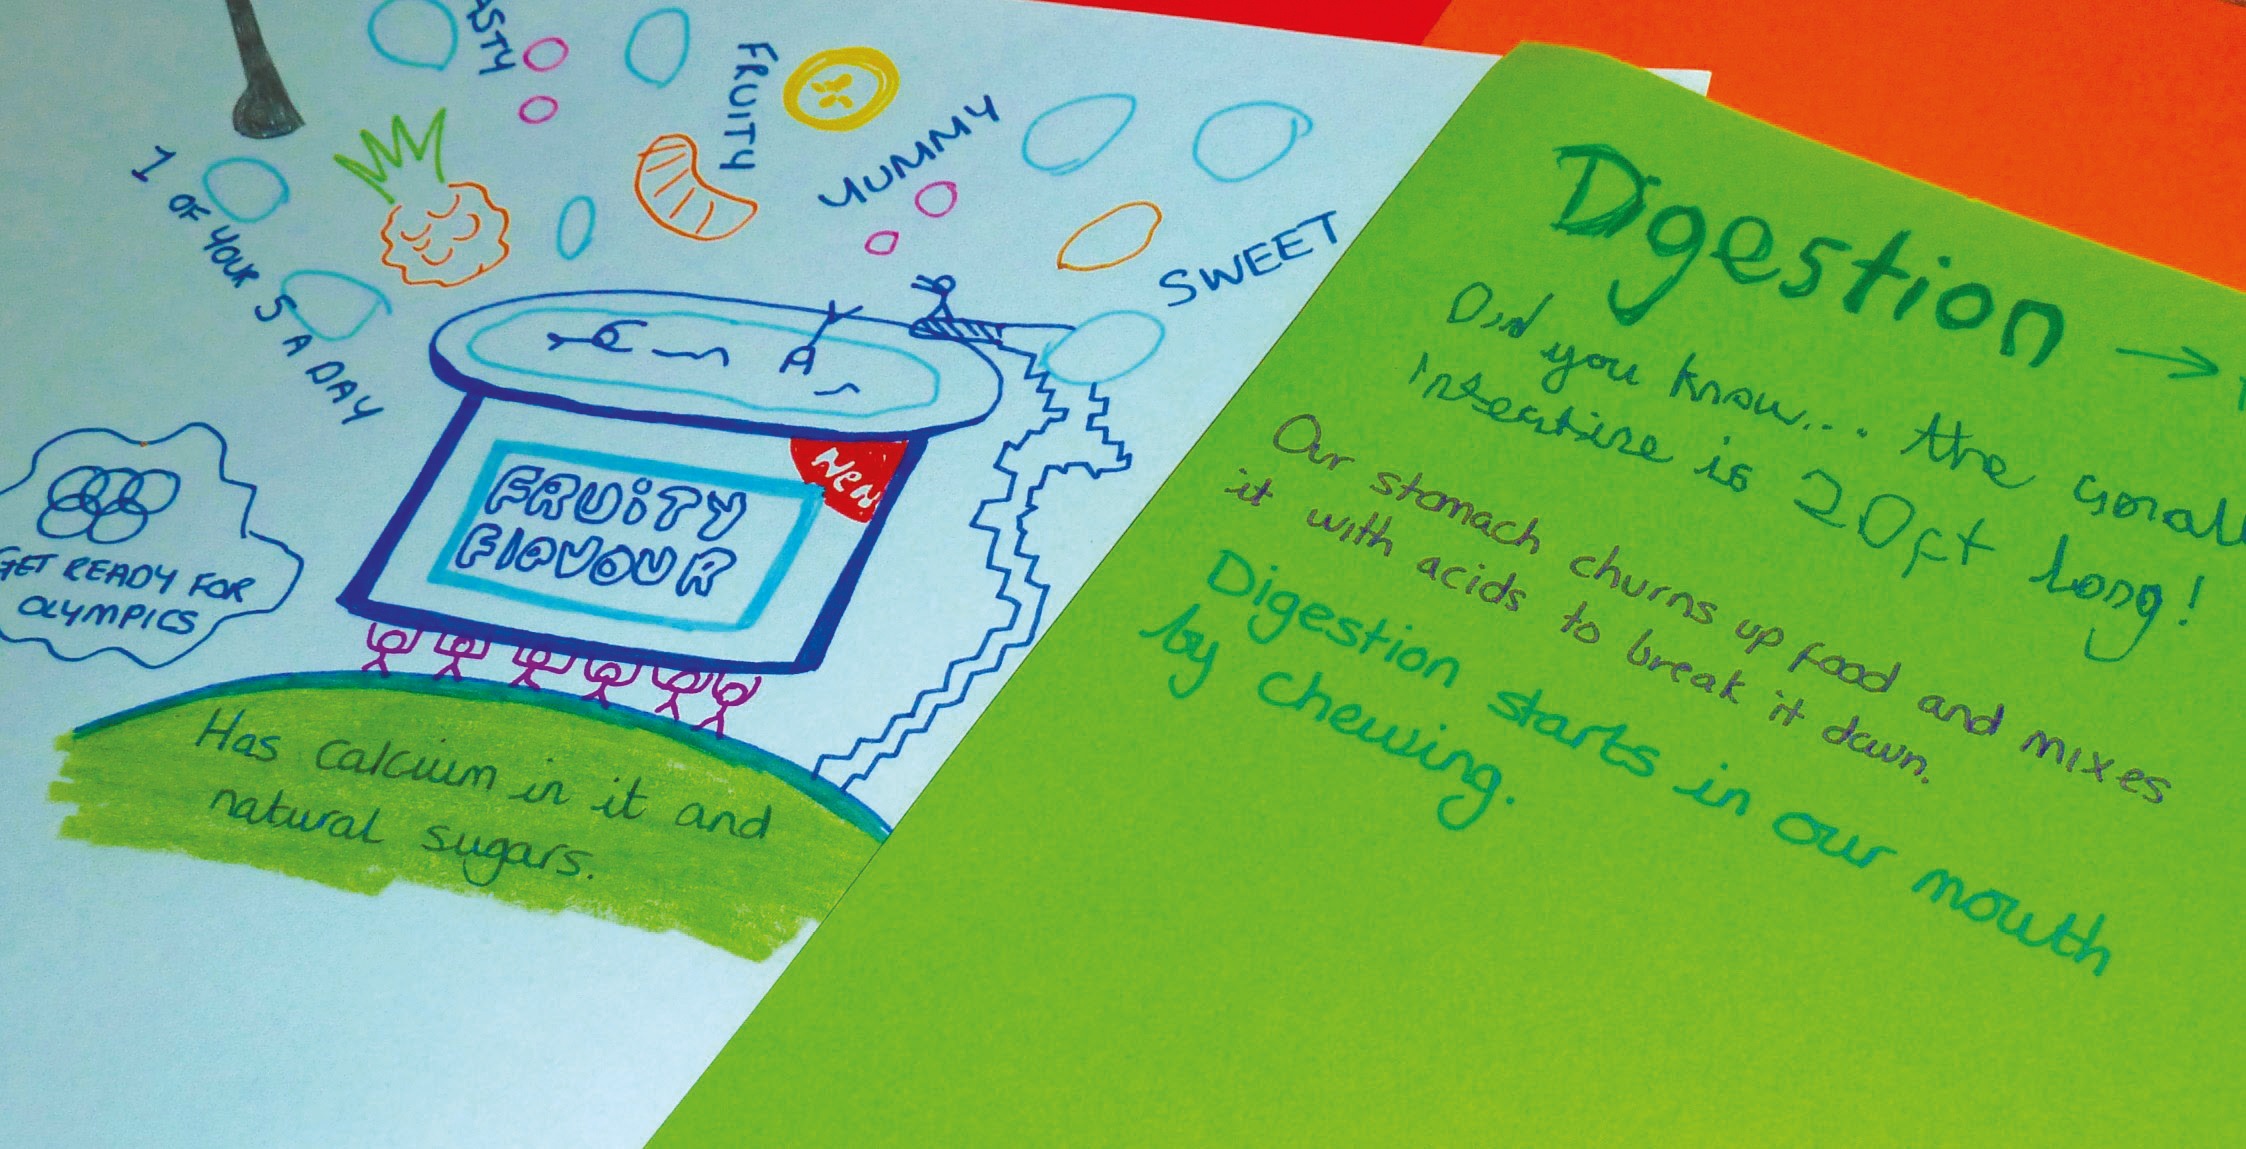 FRUITY
YUMMY
SWEET
1 OF YOUR 5 A DAY
New
FRUITY
FLAVOUR
GET READY FOR
OLYMPICS
Has calcium in it and
natural sugars.
Digestion →
Did you know... the
intestine is 20ft long!
Our stomach churns up food and mixes
it with acids to break it down.
Digestion starts in our mouth
by chewing.